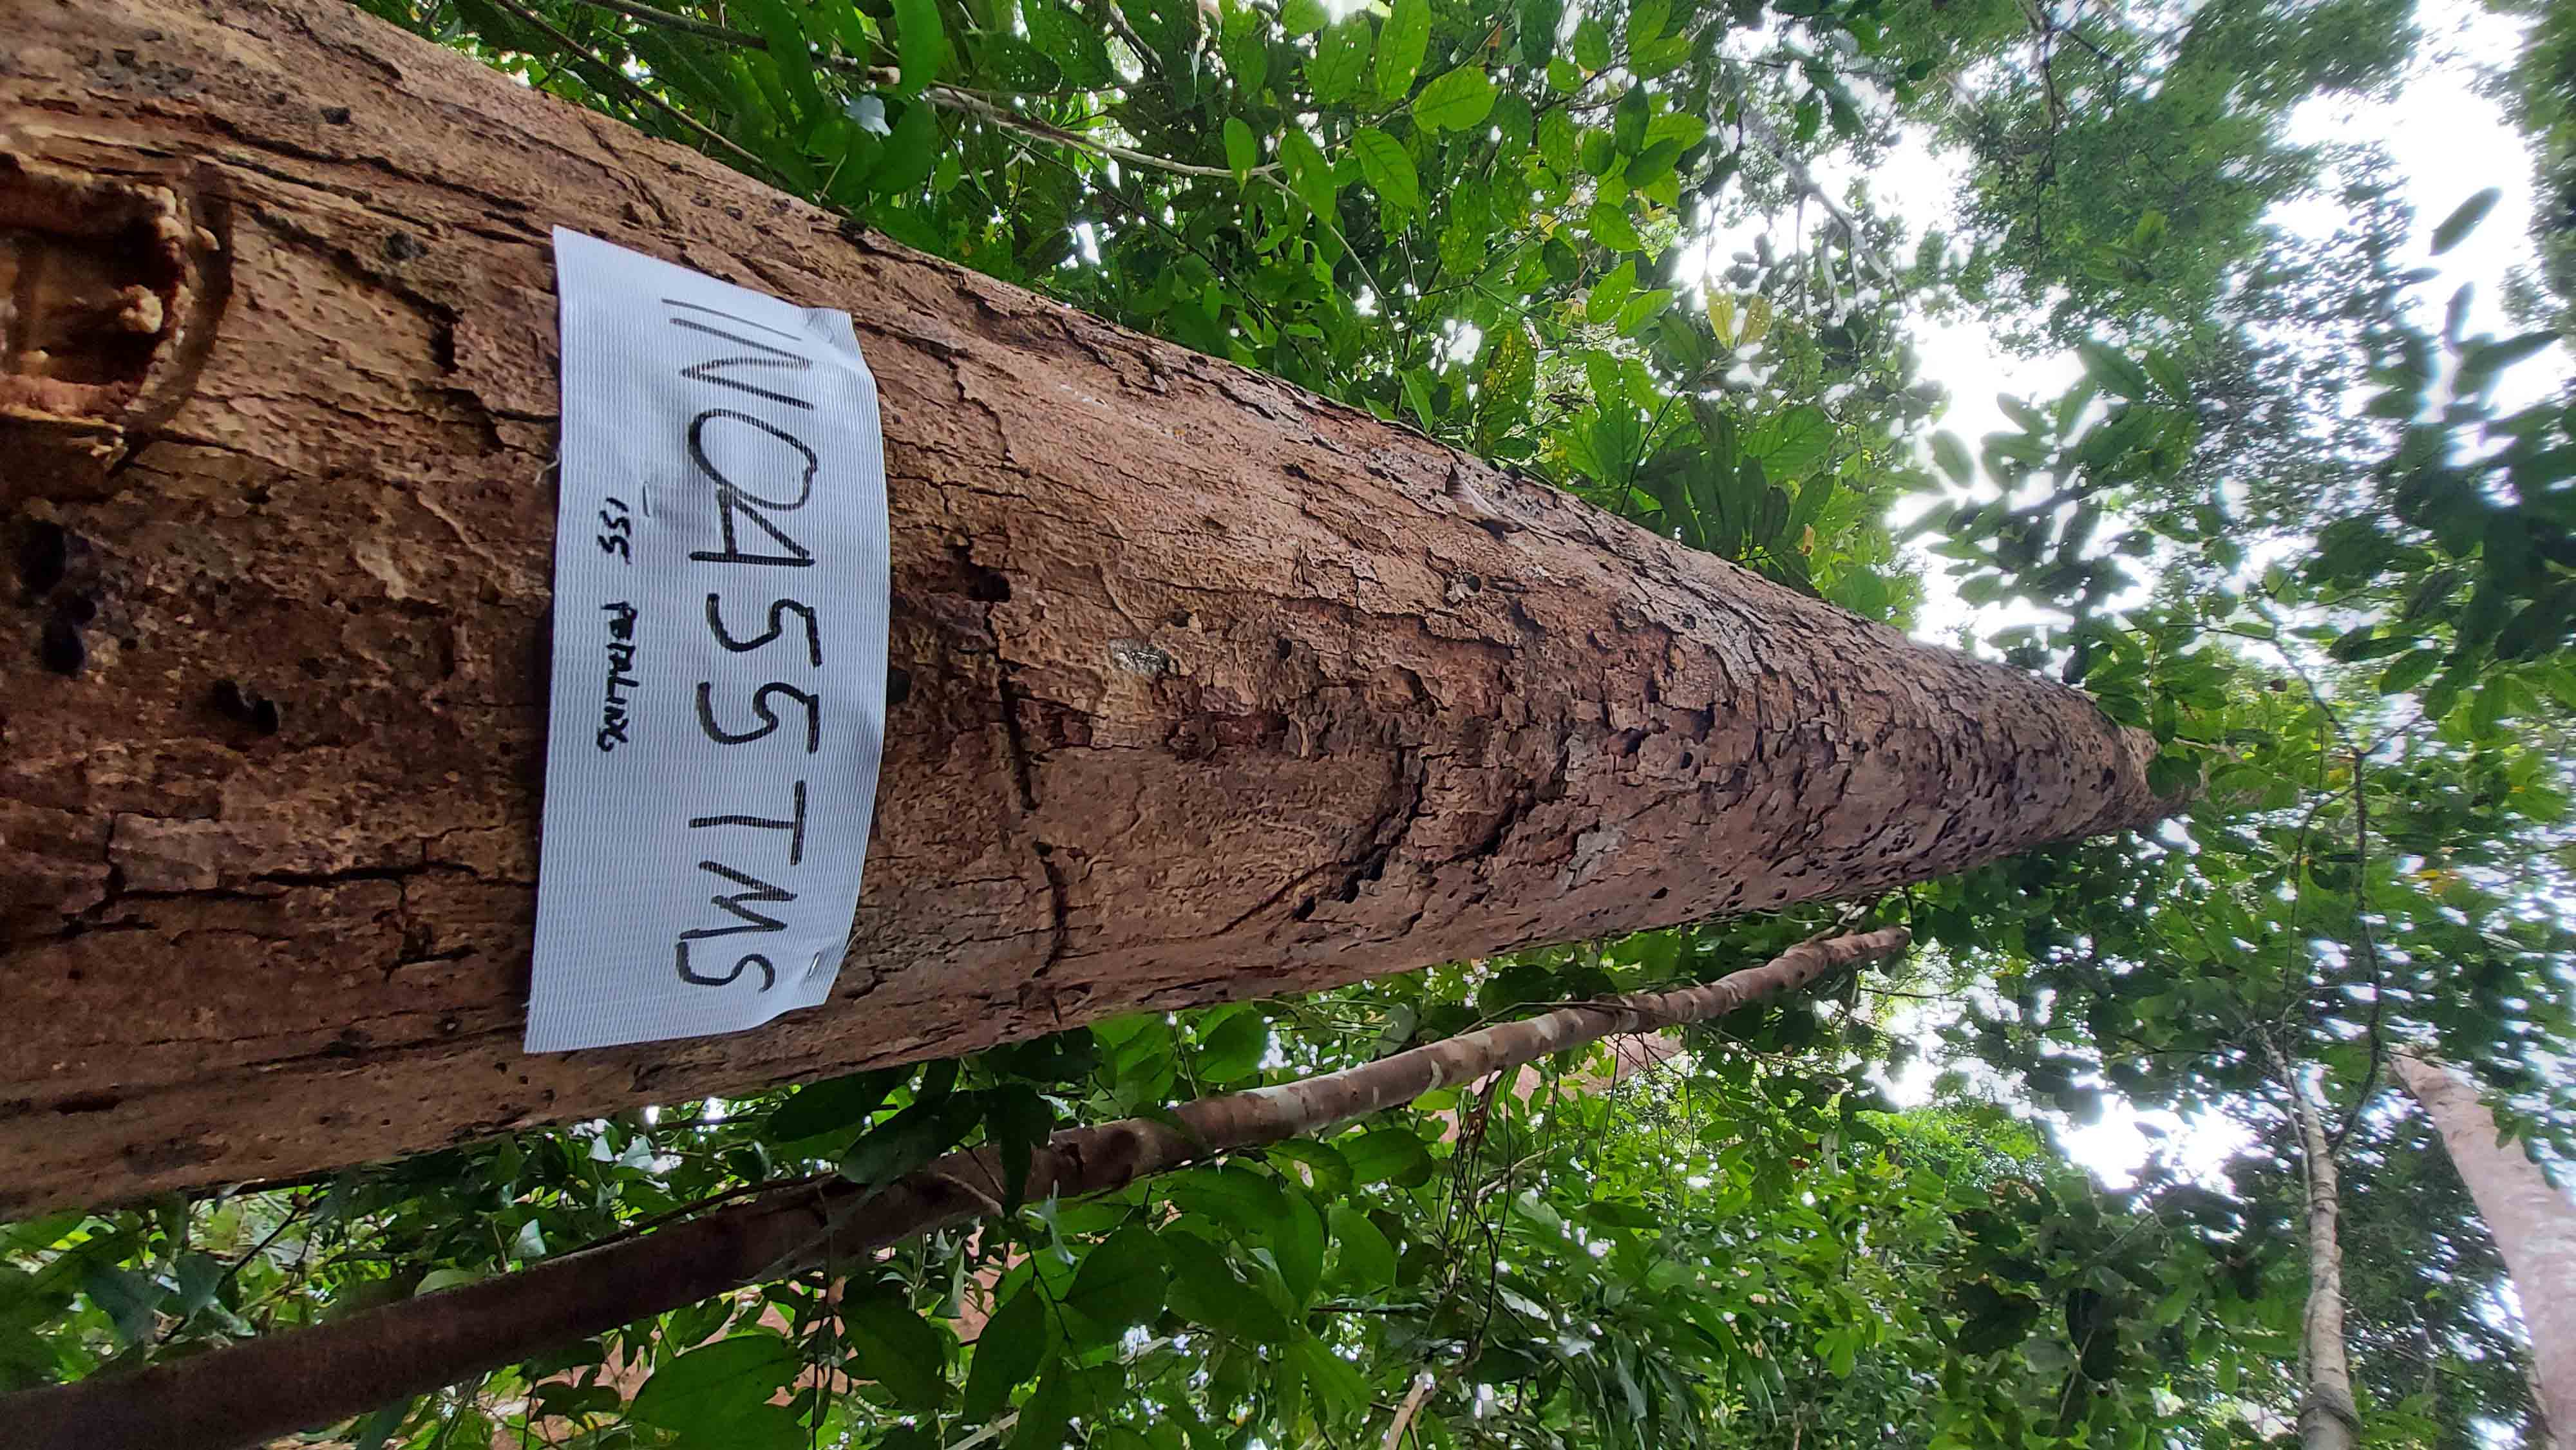 INOA55TMS
155 PETALING